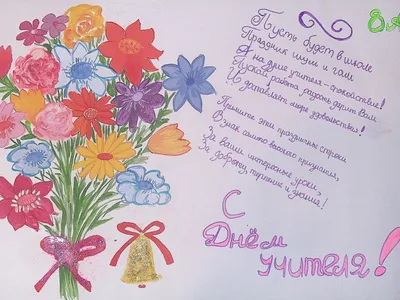 Пусть будет в школе
Праздник шум и гам
А на душе учителя - спокойствие!
Пускай работа радость дарит Вам
И доставляет море удовольствия!
Примите эти праздничные строки
В знак самого высокого признания,
За ваши интересные уроки,
За доброту, терпение и усилия!
С
Днём
учителя!